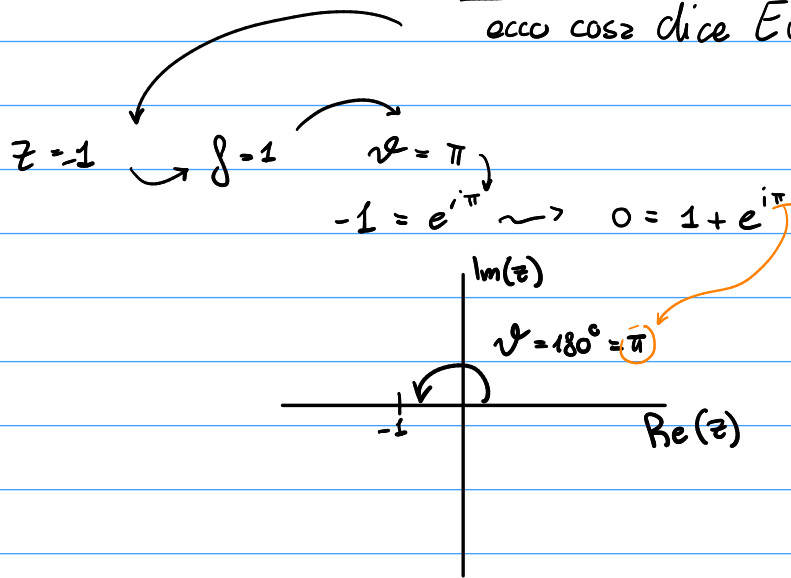 ecco cosa dice
z = -1 ρ = 1 ϑ = π
-1 = e^{iπ} ⇝ 0 = 1 + e^{iπ}
Im(z)
ϑ = 180° = π
-1
Re(z)